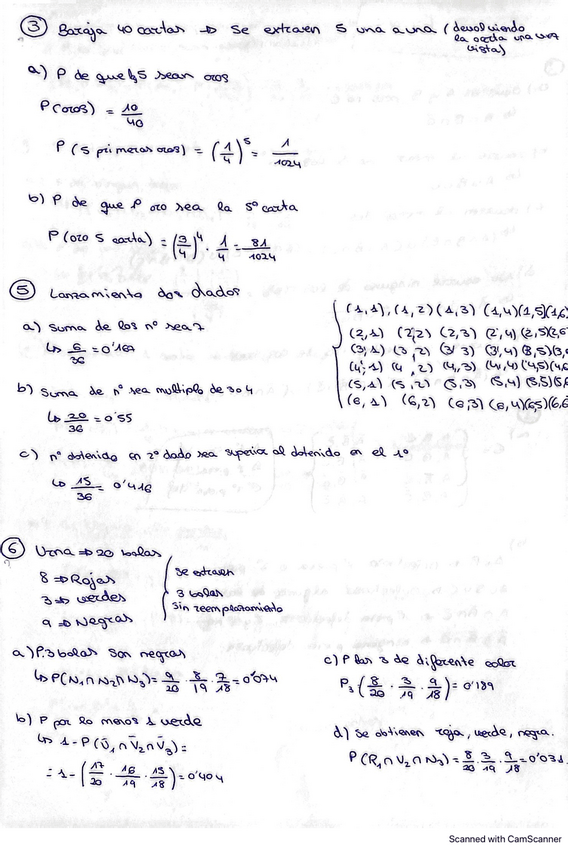 ③ Baraja 40 cartas => Se extraen 5 una a una (devolviendo la carta una vez vista)
a) P de que las 5 sean oros
P(oros) = 10/40
P(5 primeras oros) = (1/4)^5 = 1/1024
b) P de que 1º oro sea la 5º carta
P(oro 5 carta) = (3/4)^4 · 1/4 = 81/1024
⑤ Lanzamiento dos dados
a) Suma de los nº sea 7
↳ 6/36 = 0'167
b) Suma de nº sea multiplo de 3 o 4
↳ 20/36 = 0'55
c) nº obtenido en 2º dado sea superior al obtenido en el 1º
↳ 15/36 = 0'416
(1,1),(1,2)(1,3)(1,4)(1,5)(1,6
(2,1)(2,2)(2,3)(2,4)(2,5)(2,6
(3,1)(3,2)(3,3)(3,4)(3,5)(3,
(4,1)(4,2)(4,3)(4,4)(4,5)(4,6
(5,1)(5,2)(5,3)(5,4)(5,5)(5,6
(6,1)(6,2)(6,3)(6,4)(6,5)(6,6
⑥ Urna => 20 bolas
8 => Rojas
3 => verdes
9 => Negras
Se extraen
3 bolas
Sin reemplazamiento
a) P. 3 bolas son negras
↳ P(N₁∩N₂∩N₃) = 9/20 · 8/19 · 7/18 = 0'074
b) P por lo menos 1 verde
↳ 1 - P(V̄₁∩V̄₂∩V̄₃) =
= 1 - (17/20 · 16/19 · 15/18) = 0'404
c) P las 3 de diferente color
P₃ (8/20 · 3/19 · 9/18) = 0'189
d) Se obtienen roja, verde, negra.
P(R₁∩V₂∩N₃) = 8/20 · 3/19 · 9/18 = 0'031
Scanned with CamScanner